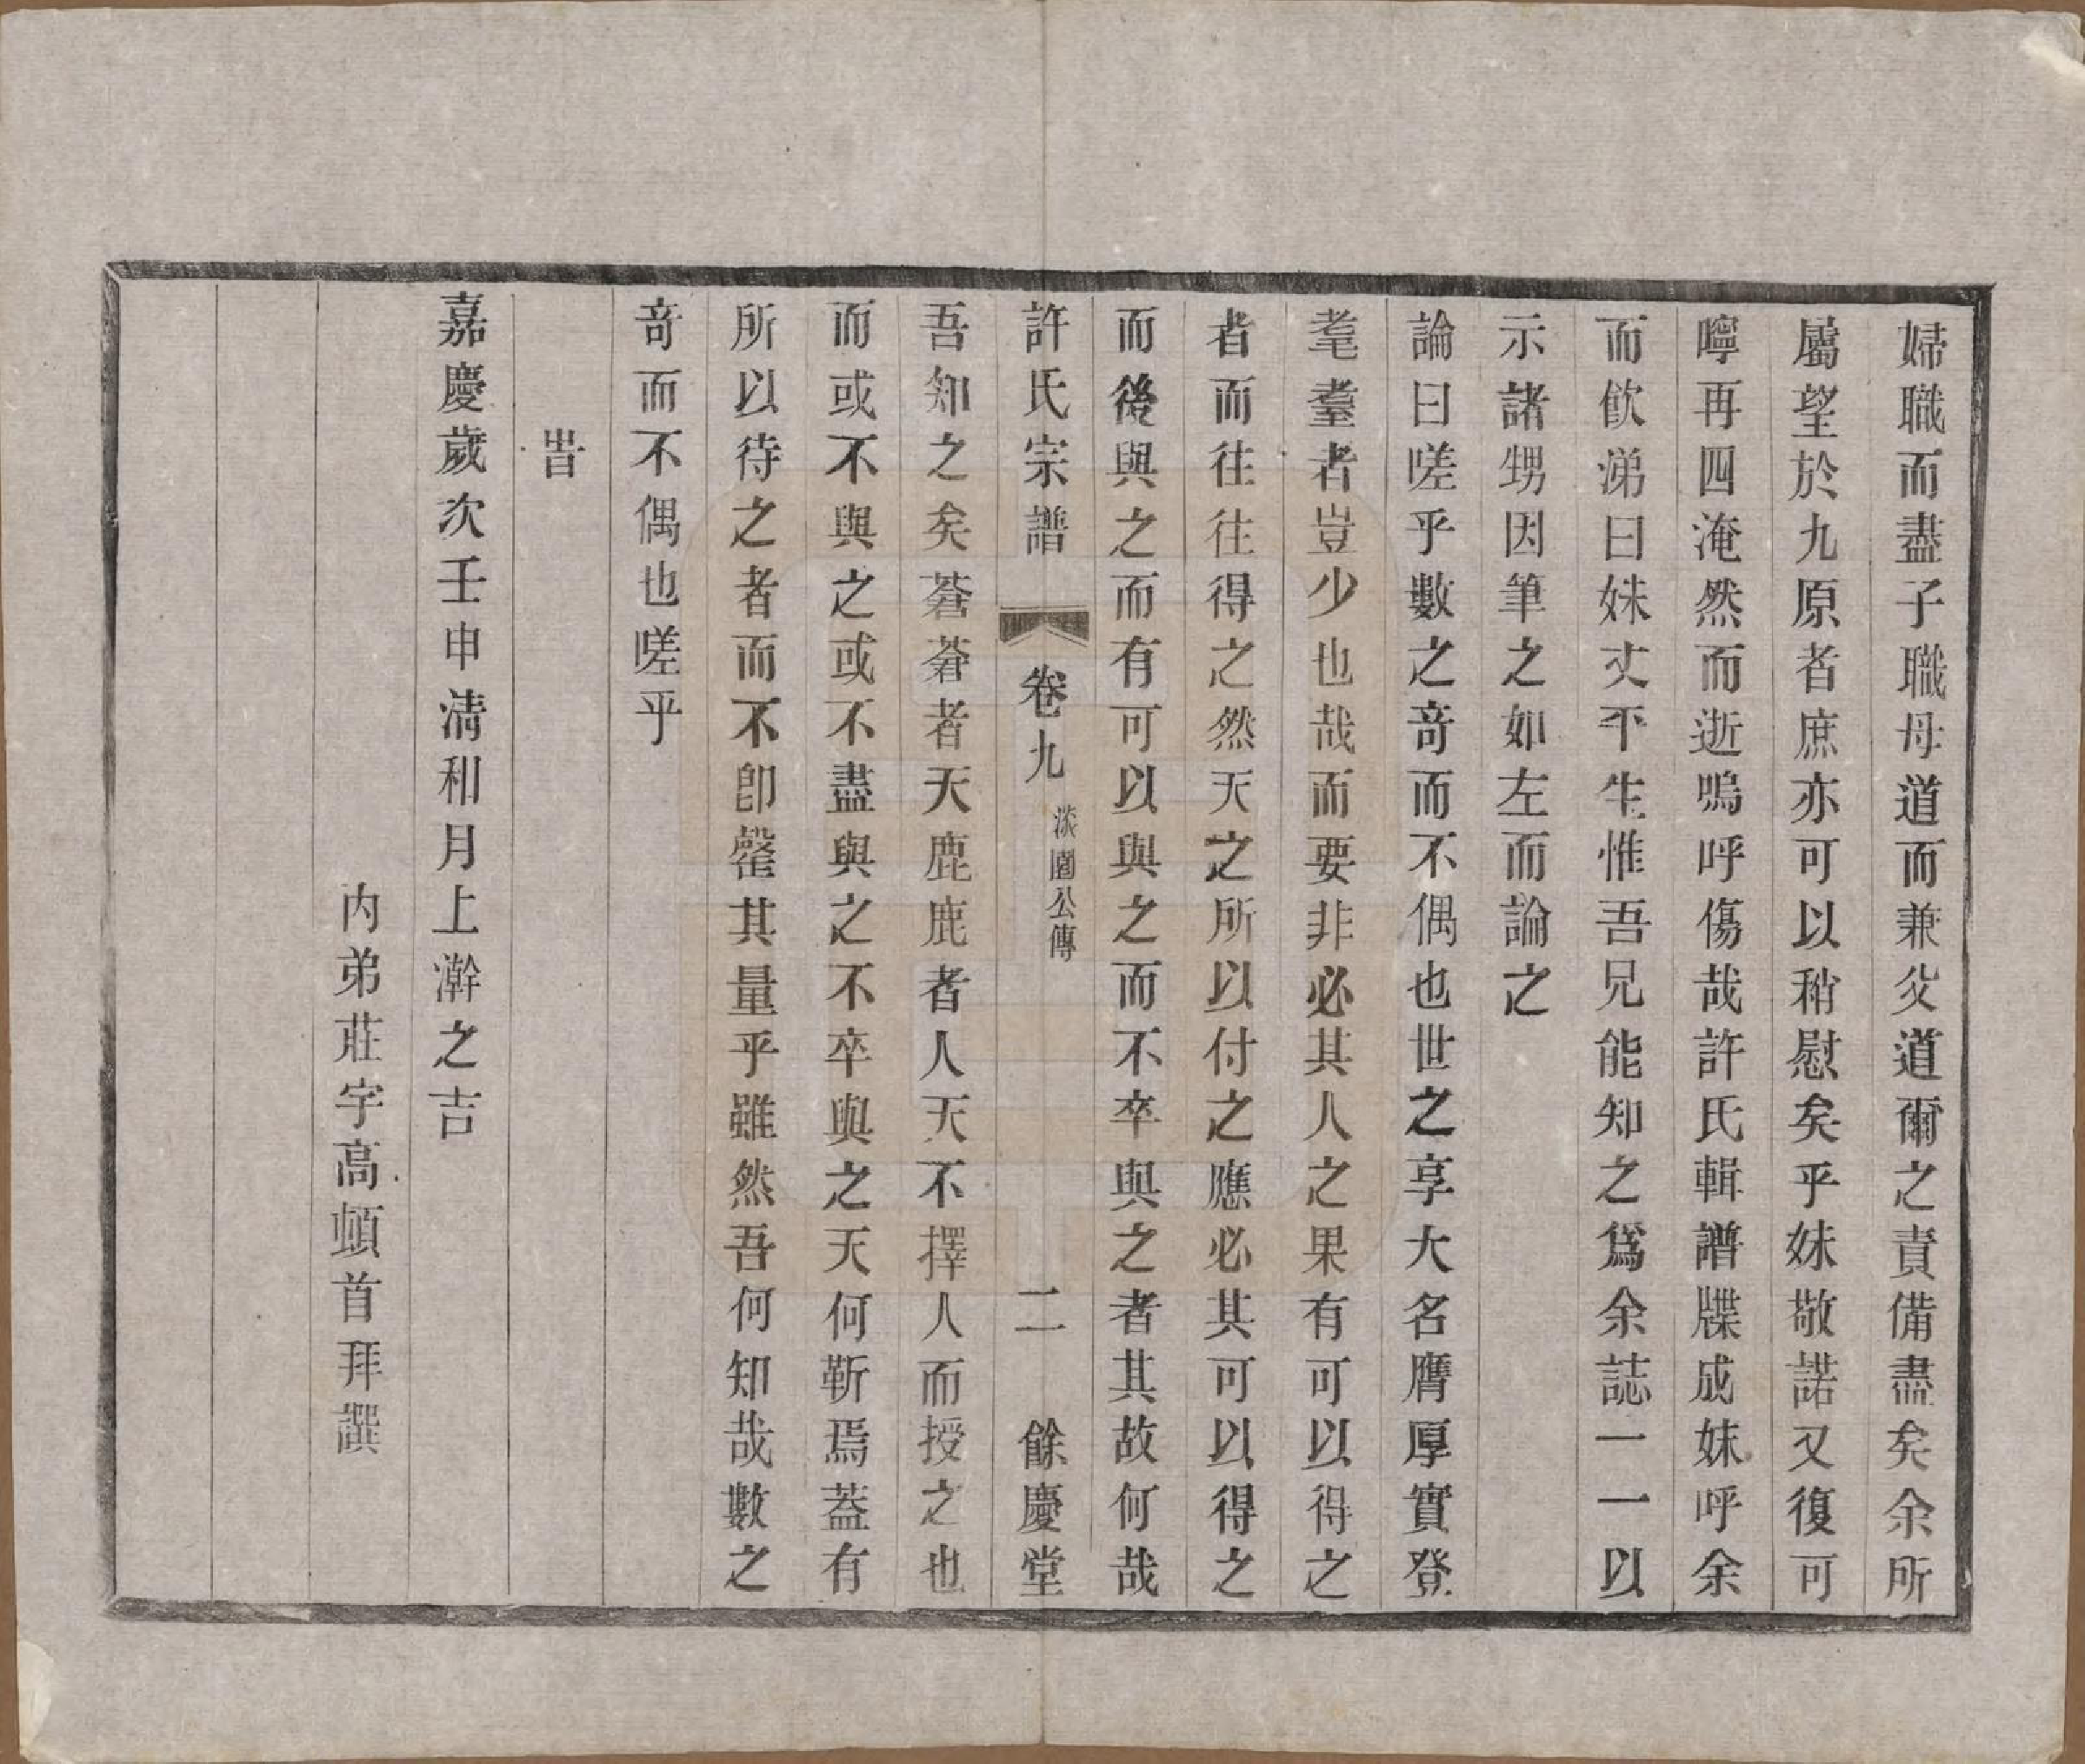 婦職而盡子職母道而兼父道爾之責備盡矣余所
屬望於九原者庶亦可以稍慰矣乎妹敬諾又復可
嚀再四淹然而逝嗚呼傷哉許氏輯譜牒成妹呼余
而飲涕曰妹丈平生惟吾兄能知之爲余誌一一以
示諸甥因筆之如左而論之
論曰嗟乎數之奇而不偶也世之享大名膺厚實登
耄耋者豈少也哉而要非必其人之果有可以得之
者而往往得之然天之所以付之應必其可以得之
而後與之而有可以與之而不卒與之者其故何哉
許氏宗譜 卷九 淡園公傳 二 餘慶堂
吾知之矣蒼蒼者天鹿鹿者人天不擇人而授之也
而或不與之或不盡與之不卒與之天何靳焉蓋有
所以待之者而不卽罄其量乎雖然吾何知哉數之
奇而不偶也嗟乎
旹
嘉慶歲次壬申清和月上澣之吉
内弟莊宇高頓首拜譔